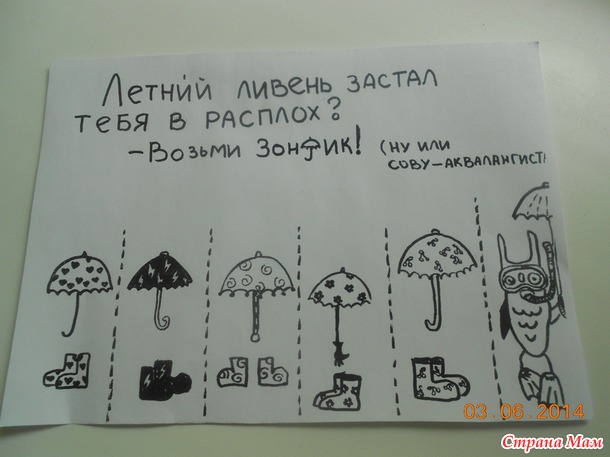 Летний ливень застал
тебя в расплох?
- Возьми зонтик! (ну или
сову-аквалангист
03.06.2014
Страна Мам